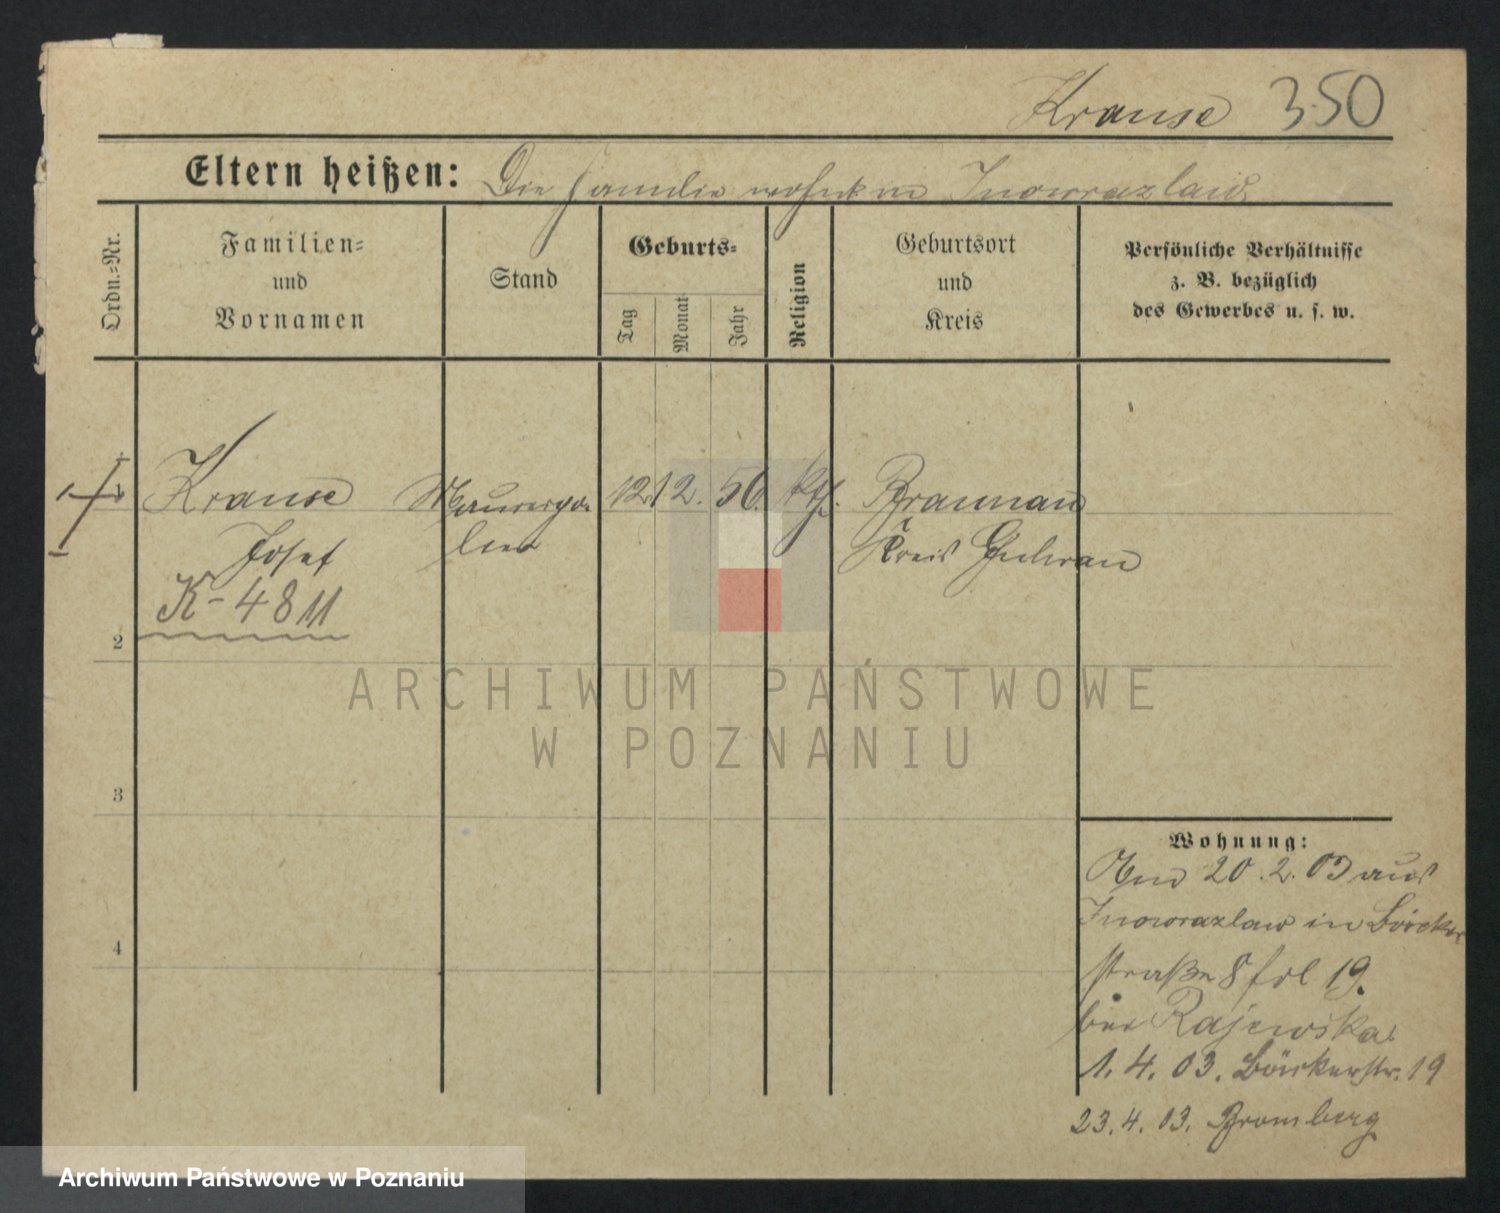 Krause 350
Eltern heißen: Die Familie wohnt in Inowrazlaw
Ordn.-Nr.
Familien- und Vornamen
Stand
Geburts-
Tag
Monat
Jahr
Religion
Geburtsort und Kreis
Persönliche Verhältnisse
z. B. bezüglich
des Gewerbes u. s. w.
1 Krause Maurerpo- 12. 12. 50. kth. Braunau
Josef lier Kreis Guhrau
K-4811
2
3
4
Wohnung:
20.2.03 aus
Inowrazlaw in Bäcker
straße 8 19.
bei Rajewska.
1.4.03. Bäckerstr. 19
23.4.03. Bromberg
ARCHIWUM PAŃSTWOWE
W POZNANIU
Archiwum Państwowe w Poznaniu